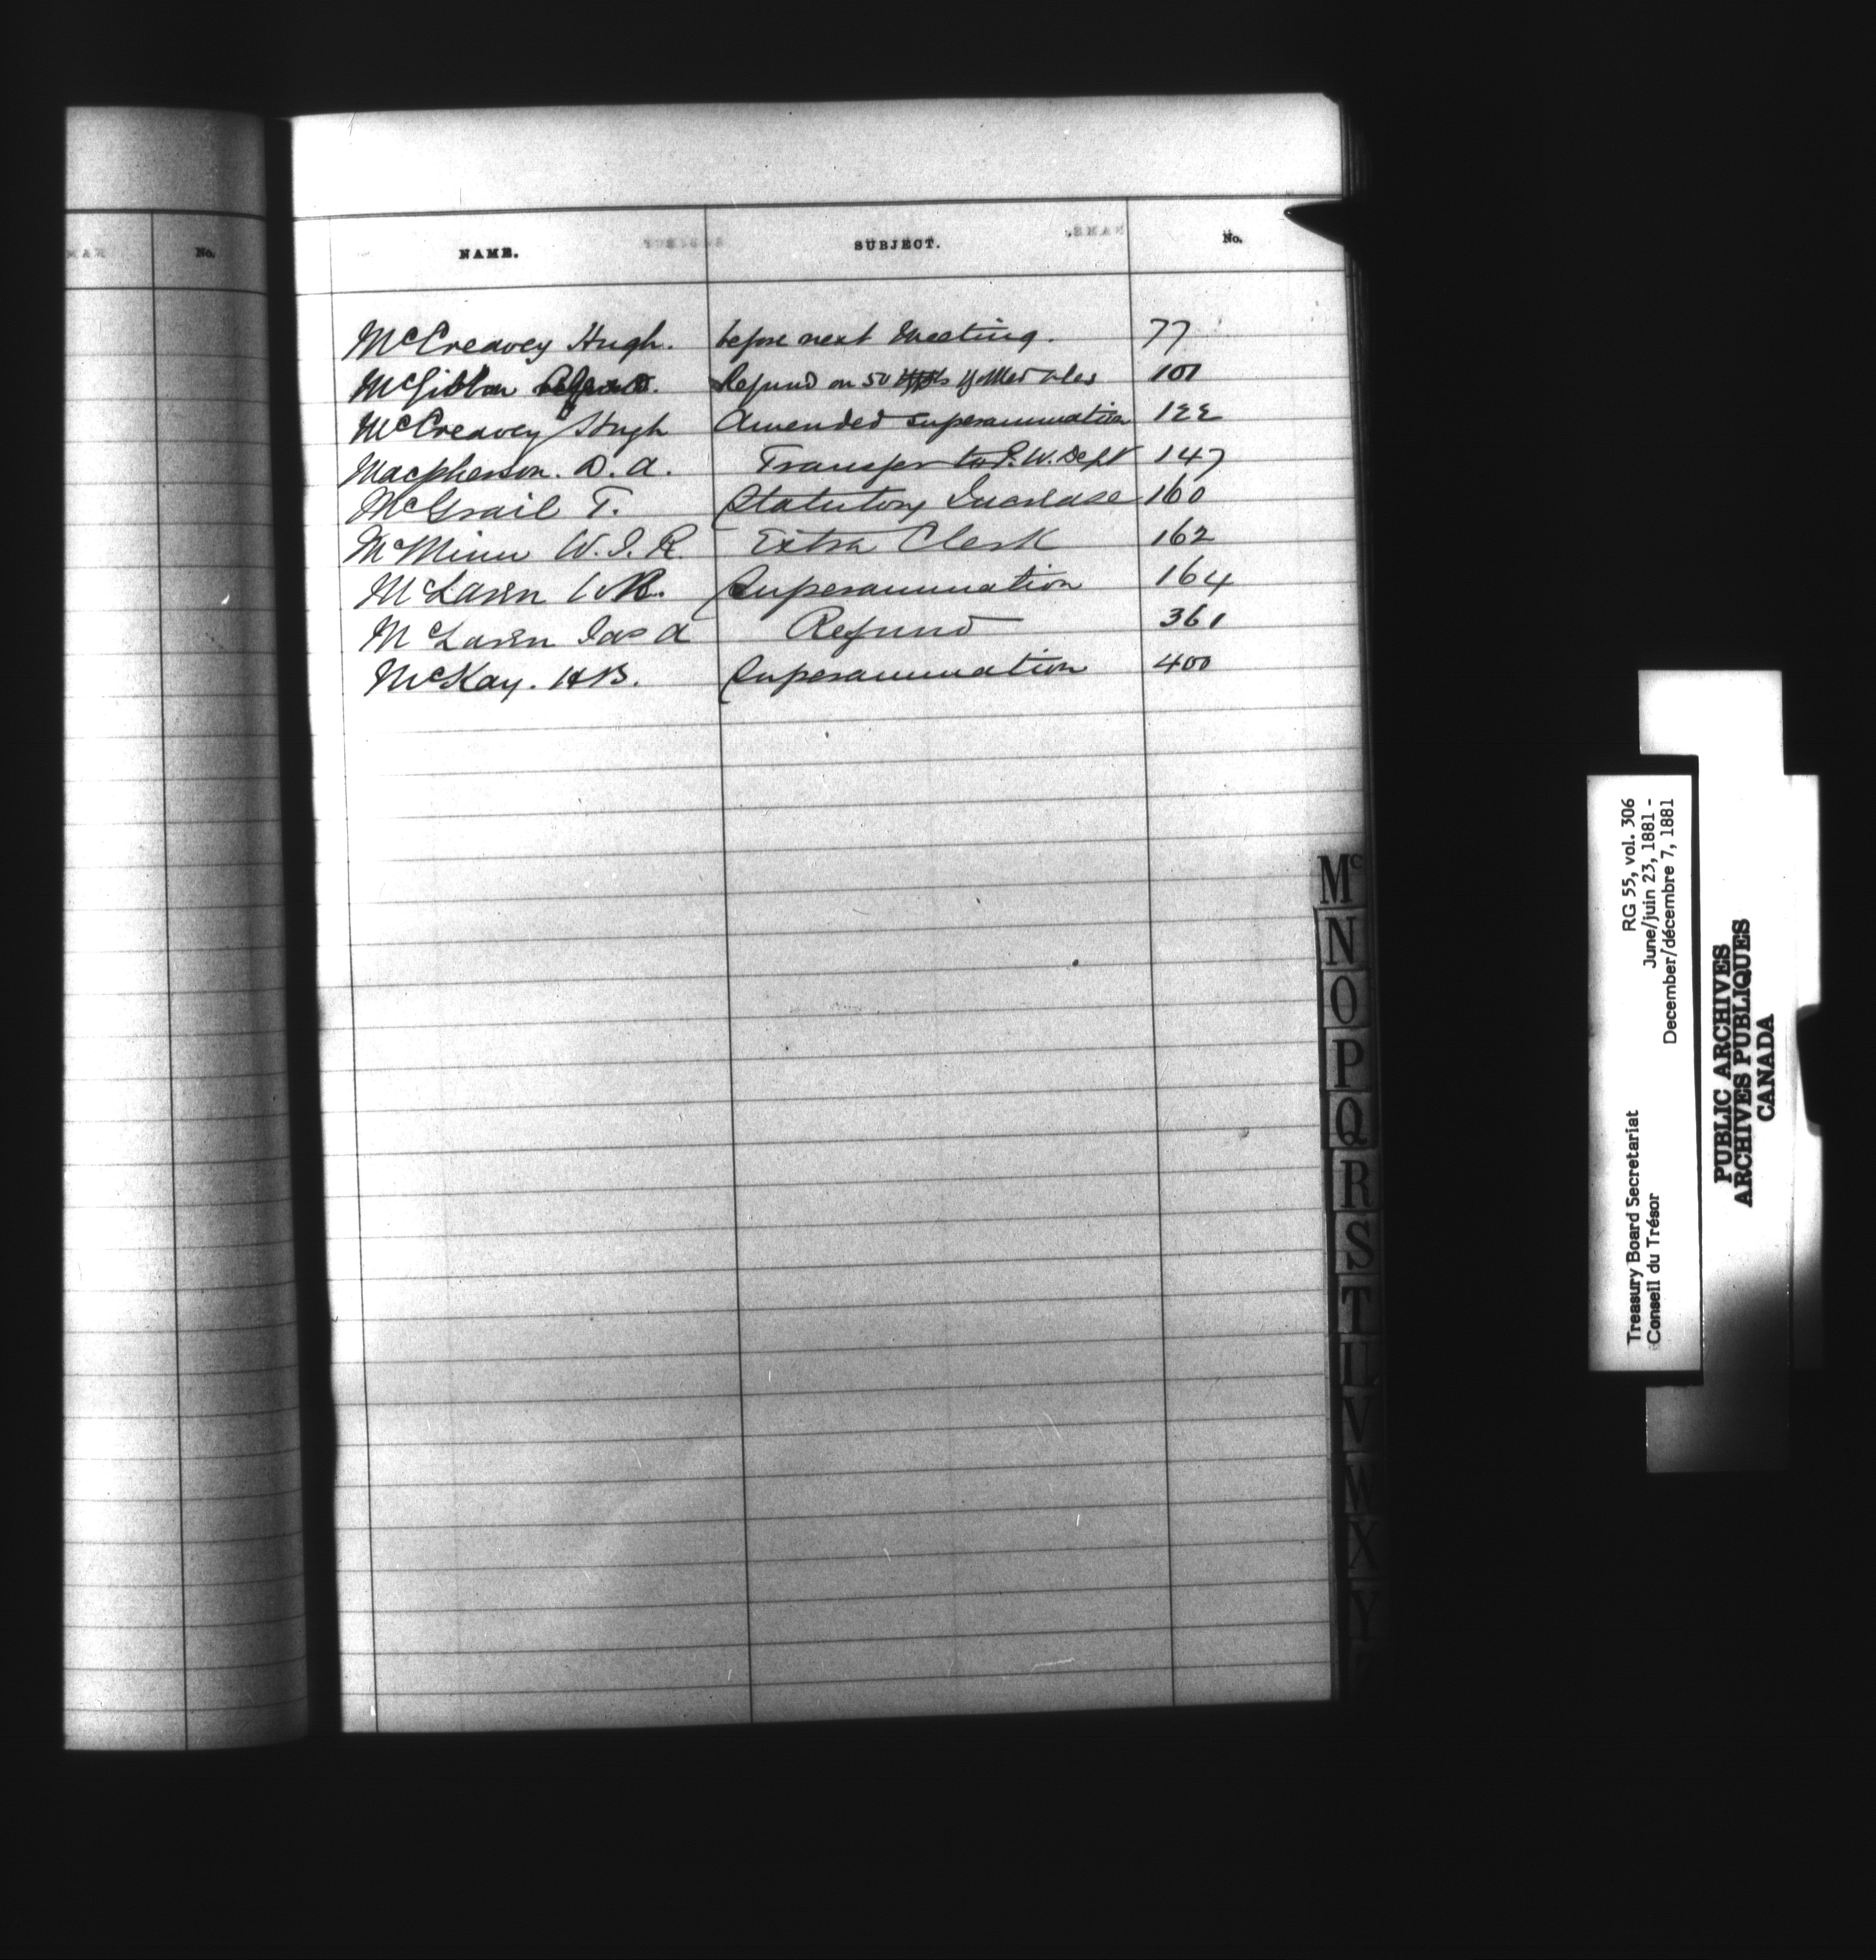 No.
NAME. SUBJECT. No.
McCreavey Hugh. before next Meeting. 77
McGibbon Refund on 50 101
McCreavey Hugh Amended superannuation 122
Macpherson. D. A. Transfer to P. W. Dept 147
McGrail T. Statutory Increase 160
McMinn W. J. R. Extra Clerk 162
McLaren W.R. Superannuation 164
McLaren Jas A Refund 361
McKay. H B. Superannuation 400
Mc
N
O
P
Q
R
S
T
U
V
W
X
Y
Treasury Board Secretariat RG 55, vol. 306
Conseil du Trésor June/juin 23, 1881 -
December/décembre 7, 1881
PUBLIC ARCHIVES
ARCHIVES PUBLIQUES
CANADA